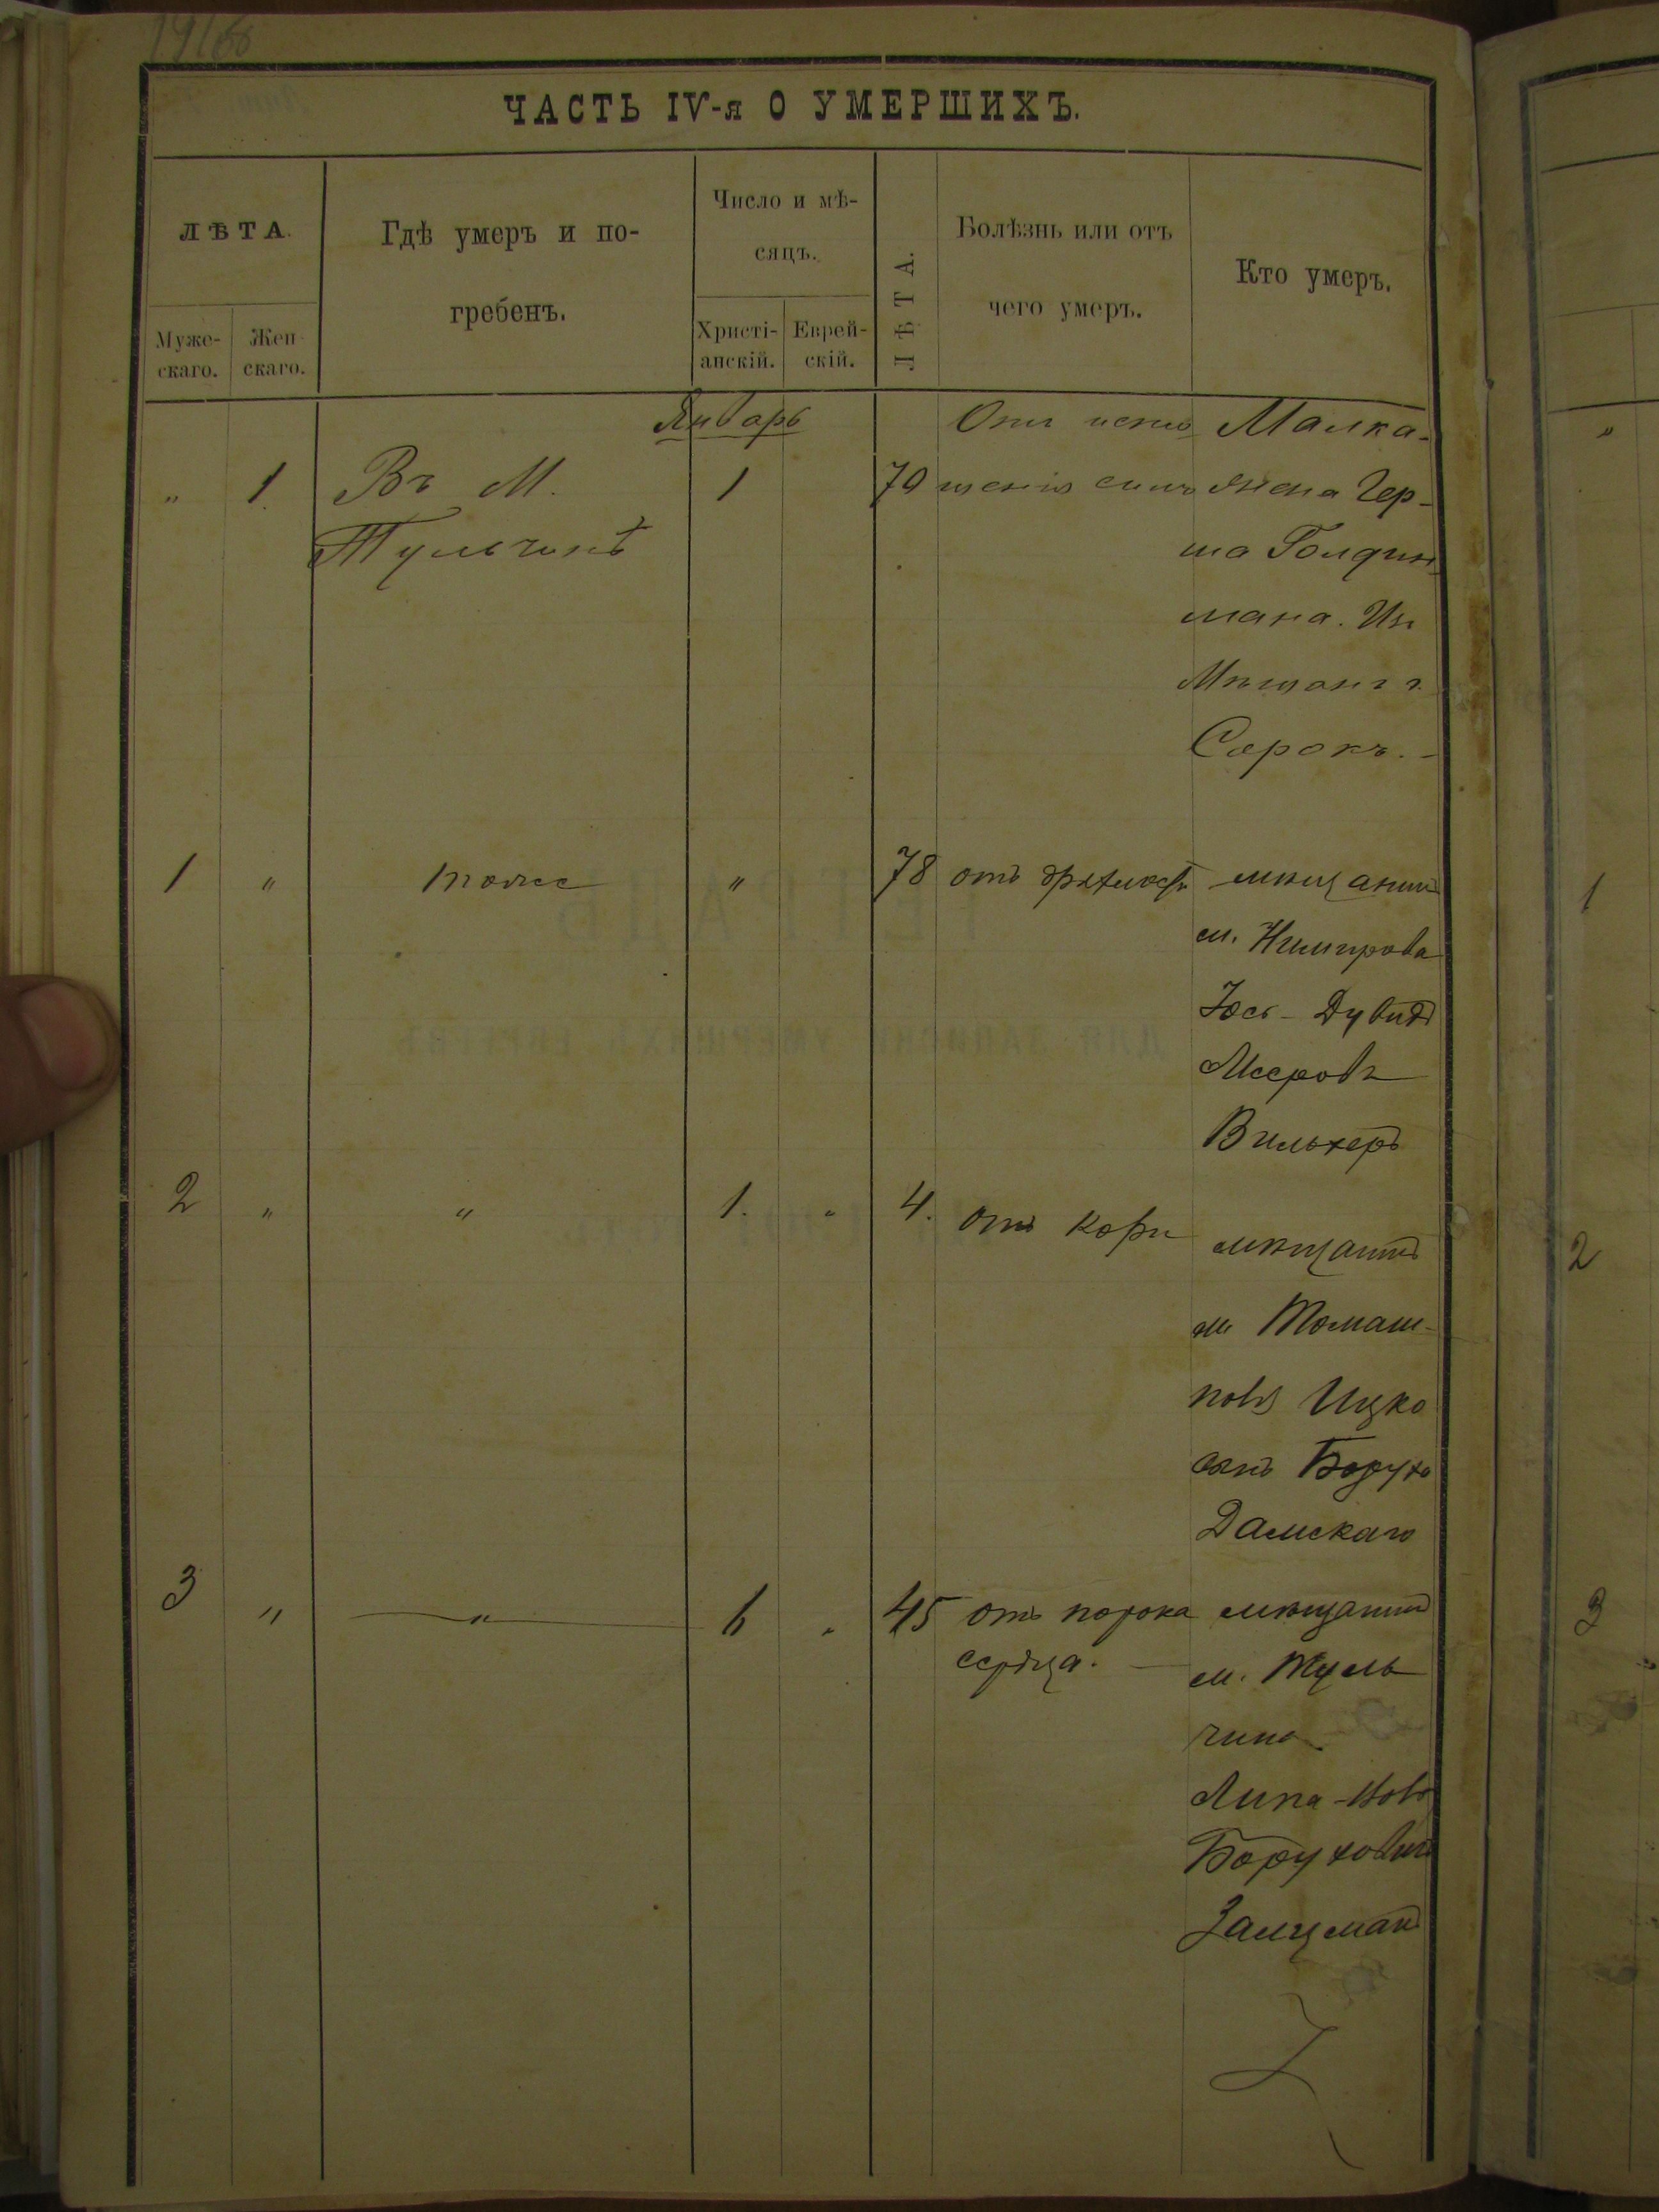 ЧАСТЬ IV-я О УМЕРШИХЪ.
ЛѢТА.
Муже-
скаго.
Жен-
скаго.
Гдѣ умеръ и по-
гребенъ.
Число и мѣ-
сяцъ.
Христі-
анскій.
Еврей-
скій.
ЛѢТА.
Болѣзнь или отъ
чего умеръ.
Кто умеръ.
Январь
" 1 Въ М.
Тульчинѣ
1
70
Отъ исто-
щенія силъ
Малка-
жена Гер-
ша Голдин-
мана. Изъ
Мѣщанъ г.
Сорокъ.-
1 " тоже " 78 отъ дряхлости
мѣщанинъ
м. Немирова
Іось-Дувидъ
Мееровъ
Вильхеръ
2 " " 1. " 4. отъ кори
мѣщанинъ
м. Томаш-
поля Ицко
сынъ Боруха
Дамскаго
3 " " 6 " 45 отъ порока
сердца.
мѣщанинъ
м. Туль
чина
Липа-
Боруховичъ
Залцманъ
"
1
2
3